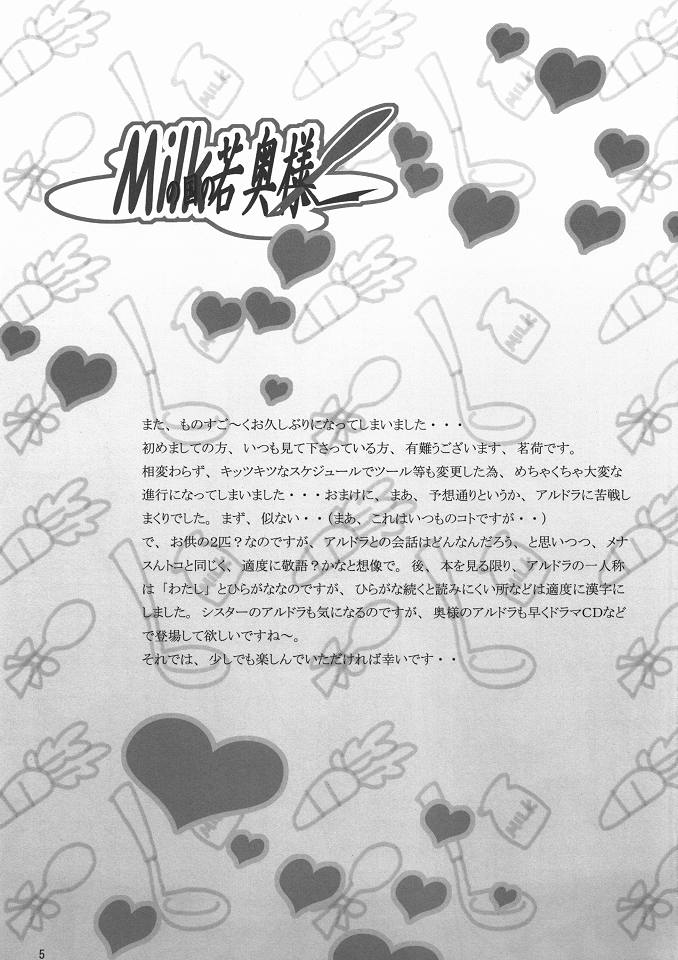 Milkの国の若奥様
また、ものすご～くお久しぶりになってしまいました・・・
初めましての方、いつも見て下さっている方、有難うございます、茗荷です。
相変わらず、キッツキツなスケジュールでツール等も変更した為、めちゃくちゃ大変な
進行になってしまいました・・・おまけに、まあ、予想通りというか、アルドラに苦戦し
まくりでした。まず、似ない・・（まあ、これはいつものコトですが・・）
で、お供の2匹？なのですが、アルドラとの会話はどんなんだろう、と思いつつ、メナ
スんトコと同じく、適度に敬語？かなと想像で。後、本を見る限り、アルドラの一人称
は「わたし」とひらがななのですが、ひらがな続くと読みにくい所などは適度に漢字に
しました。シスターのアルドラも気になるのですが、奥様のアルドラも早くドラマCDなど
で登場して欲しいですね～。
それでは、少しでも楽しんでいただければ幸いです・・
MILK
MILK
MILK
MILK
5